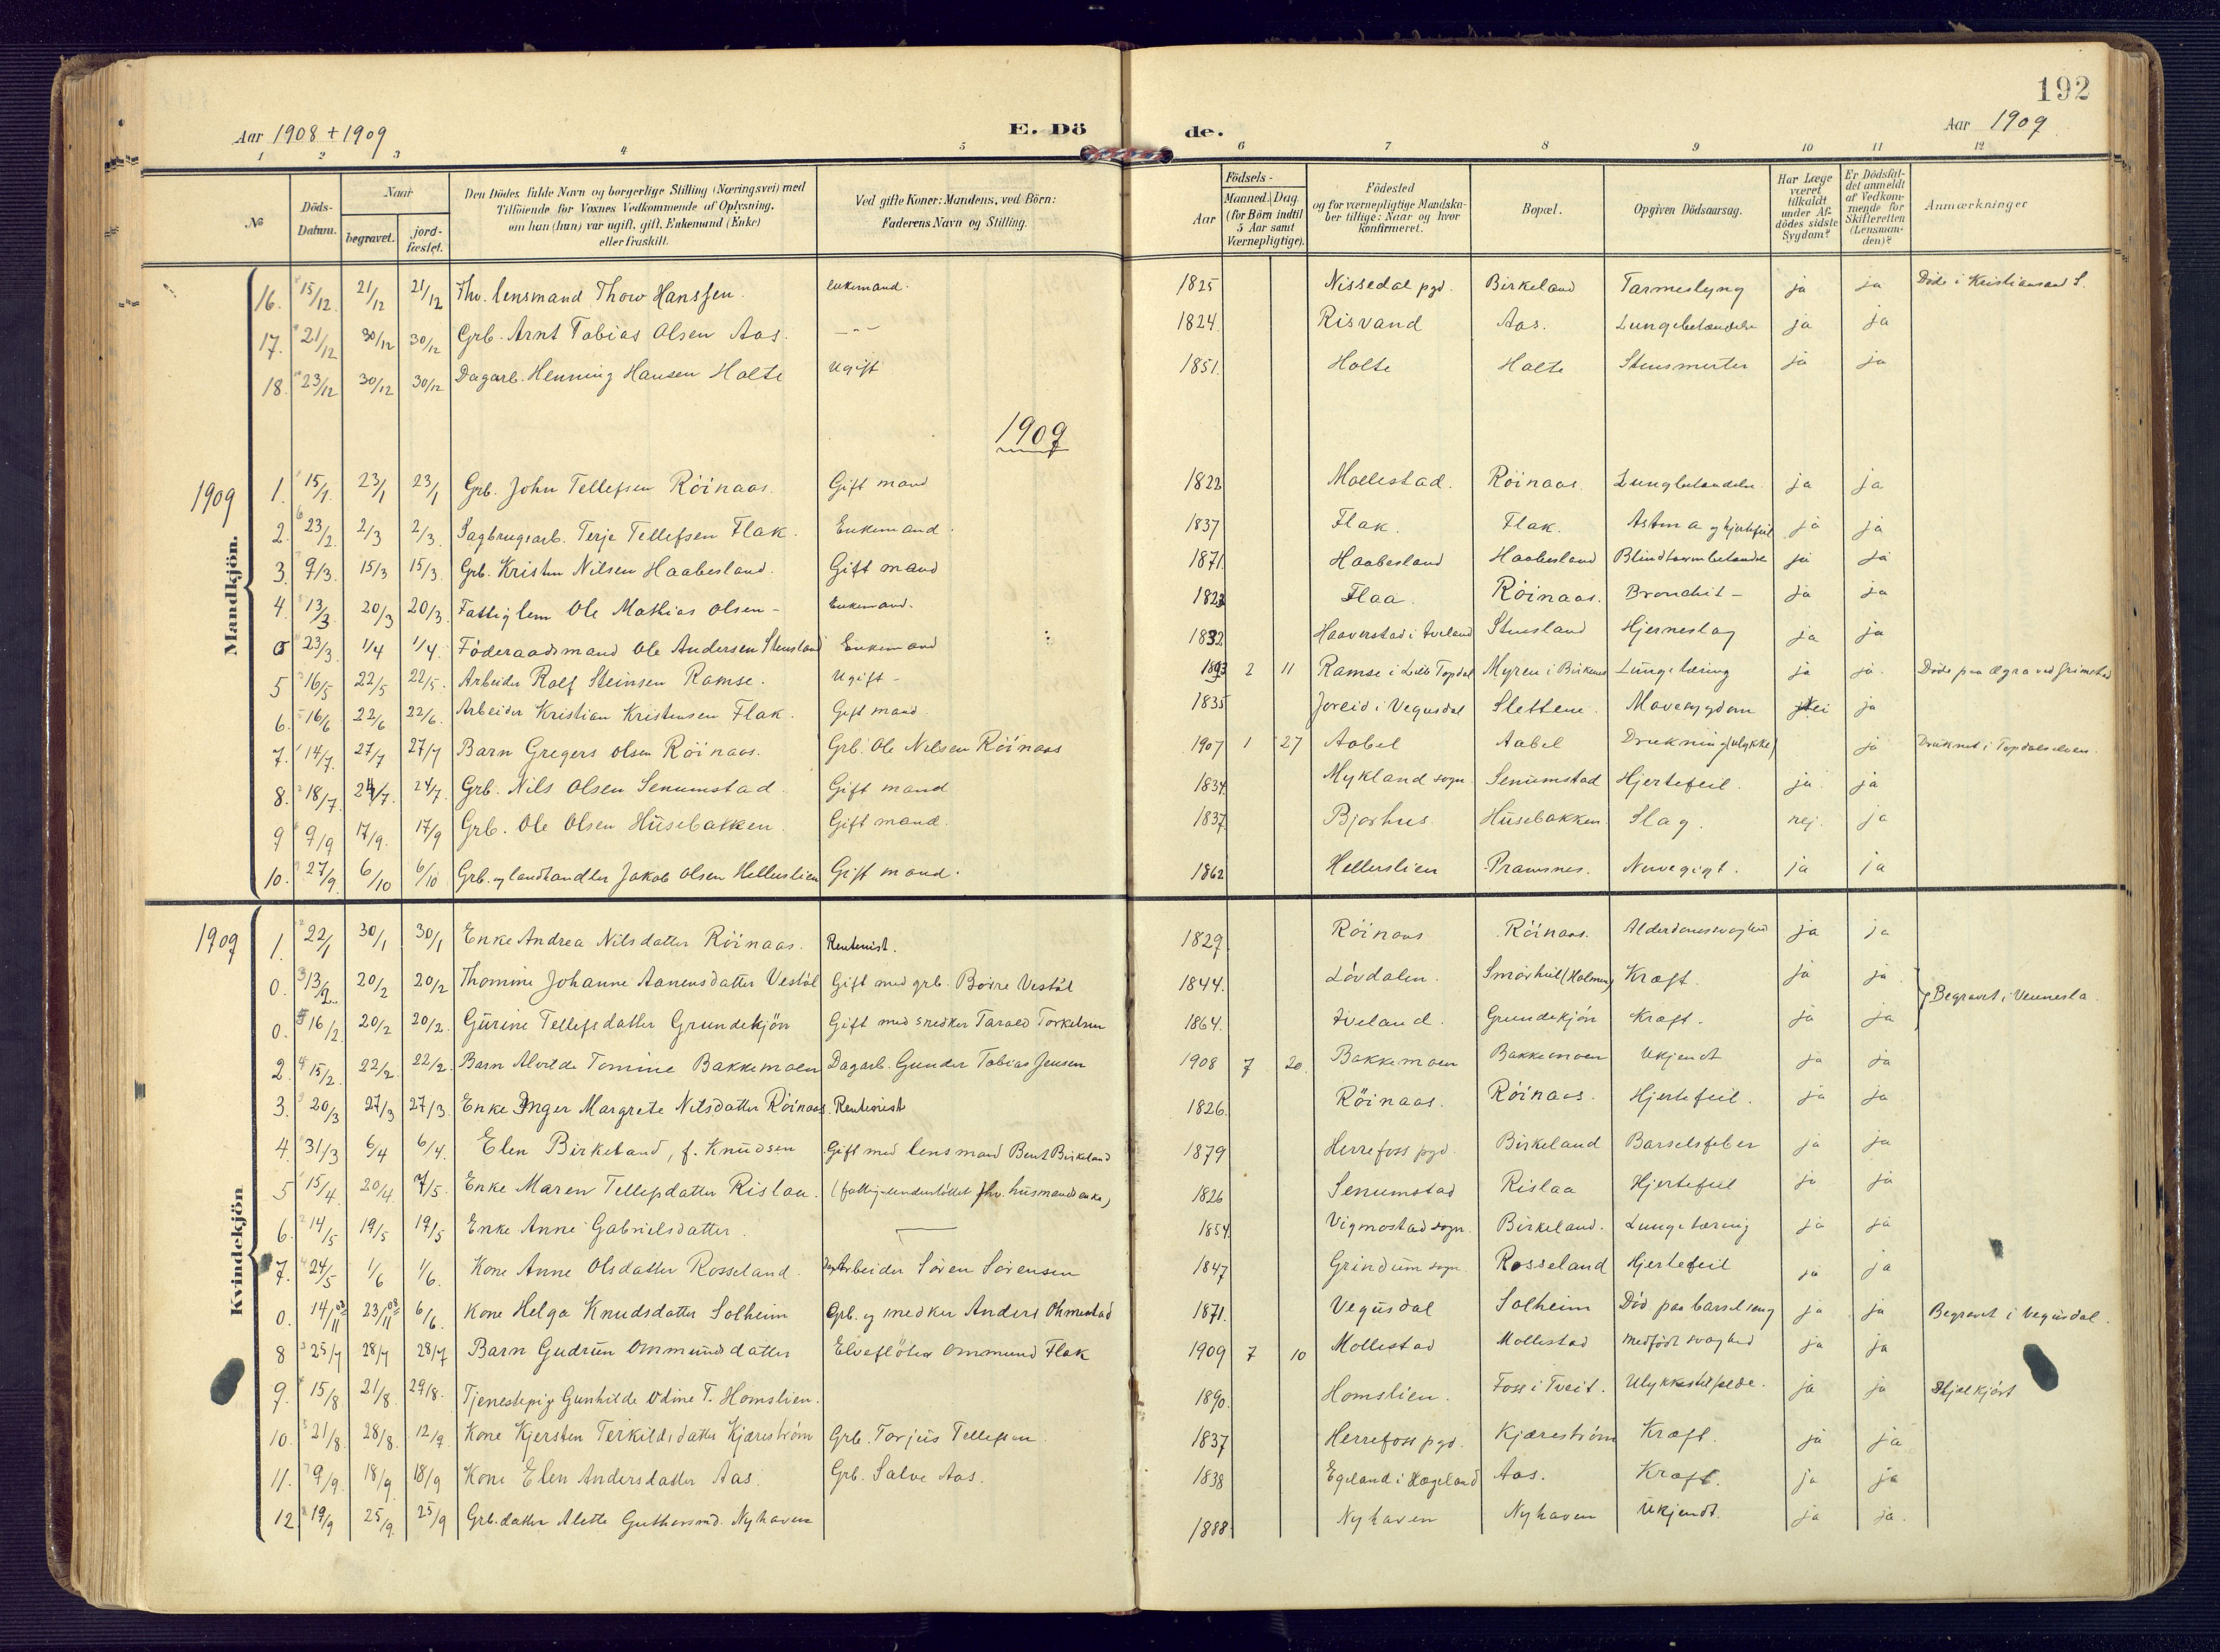 192
Aar 1908 + 1909 E. Dö de. Aar 1909
1 2 3 4 5 6 7 8 9 10 11 12
No Döds-Datum. Naar begravet. jordfæstet. Den Dödes fulde Navn og borgerlige Stilling (Næringsvei) med Tilföiende for Voxnes Vedkommende af Oplysning, om han (hun) var ugift, gift, Enkemand (Enke) eller fraskilt. Ved gifte Koner: Mandens, ved Börn: Faderens Navn og Stilling. Födsels- Aar Maaned. Dag. (for Börn indtil 5 Aar samt Værnepligtige). Födested og for værnepligtige Mandskaber tillige: Naar og hvor konfirmeret. Bopæl. Opgiven Dödsaarsag. Har Læge været tilkaldt under Afdödes sidste Sygdom? Er Dödsfaldet anmeldt af Vedkommende for Skifteretten (Lensmanden)? Anmærkninger
Mandkjön.
16. 15/12 21/12 21/12 Fhv. lensmand Thow Hanssen. enkemand. 1825 Nissedal pgd. Birkeland Tarmeslyng ja ja Døde i Kristiansand S.
17. 21/12 30/12 30/12 Grb. Arnt Tobias Olsen Aas. —"— 1824. Risvand Aas. Lungebetændelse ja ja
18. 23/12 30/12 30/12 Dagarb. Henning Hansen Holte Ugift 1851. Holte Holte ja ja
1909
1909 1. 15/1. 23/1 23/1 Grb. John Tellefsen Röinaas. Gift mand 1822 Mollestad. Röinaas. Lungbetændelse ja ja
2. 23/2. 2/3 2/3. Sagbrugsarb. Terje Tellefsen Flak. Enkemand. 1837 Flak. Flak. Astma og hjertefeil ja ja
3. 9/3. 15/3 15/3. Grb. Kristen Nilsen Haabesland. Gift mand 1871. Haabesland Haabesland Blindtarmbetændelse ja ja
4. 13/3. 20/3 20/3. Fattiglem Ole Mathias Olsen - Enkemand. Flaa. Röinaas. Bronchit - ja ja
0 23/3. 1/4 1/4. Föderaadsmand Ole Andersen Stensland Enkemand 1832 Haaverstad i Iveland Stensland Hjerneslag ja ja
5 16/5 22/5 22/5. Arbeider Rolf Steinsen Ramse. Ugift - 1893 2 11 Ramse i Lille Topdal Myren i Birkenes Lungetæring ja ja. Døde paa Ægra ved Grimstad
6. 16/6 22/6 22/6. Arbeider Kristian Kristensen Flak. Gift mand. 1835 Joreid i Vegusdal Slettene. Mavesygdom nei ja
7. 14/7. 27/7 27/7 Barn Gregers Olsen Röinaas. Grb. Ole Nilsen Röinaas 1907 1 27 Aabel Aabel Drukning (ulykke) ja Druknet i Topdalselven.
8. 18/7. 24/7. 24/7. Grb. Nils Olsen Senumstad. Gift mand 1834. Mykland sogn. Senumstad Hjertefeil. ja ja
9 9/9 17/9. 17/9 Grb. Ole Olsen Husebakken. Gift mand. 1837. Bjorhus. Husebakken. Slag. nej. ja
10. 27/9. 6/10 6/10 Grb. og landhandler Jakob Olsen Hellerslien Gift mand. 1862 Hellerslien Pramsnes. Nervegigt. ja ja
Kvindekjön
1909 1. 22/1 30/1 30/1 Enke Andrea Nilsdatter Röinaas. Rentenist. 1829 Röinaas Röinaas. Alderdomssvaghed ja ja
0. 13/2. 20/2 20/2 Thomine Johanne Aanensdatter Vestöl Gift med grb. Börre Vestöl 1844. Lövdalen. Smörhul (Holmen) Kræft. ja ja } Begravet i Vennesla.
0. 16/2. 20/2 20/2. Gurine Tellefsdatter Grundekjön Gift med snedker Tarald Torkelsen 1864. Iveland. Grundekjön Kræft. ja ja
2. 15/2. 22/2. 22/2. Barn Alvilde Tomine Bakkemoen Dagarb. Gunder Tobias Jensen 1908 7 20. Bakkemoen Bakkemoen Ukjendt ja ja
3. 20/3 27/3 27/3. Enke Inger Margrete Nilsdatter Röinaas. Rentenist 1826. Röinaas. Röinaas. Hjertefeil. ja ja
4. 31/3 6/4 6/4. Elen Birkeland, f. Knudsen Gift med lensmand Bent Birkeland 1879 Herrefoss pgd. Birkeland Barselsfeber ja ja
5 15/4. 20/4. 7/5. Enke Maren Tellefsdatter Rislaa. (fattig-understöttet fhv. husmands enke) 1826 Senumstad Rislaa Hjertefeil ja ja
6. 14/5 19/5 19/5 Enke Anne Gabrielsdatter. — 1854. Vigmostad sogn. Birkeland. Lungetæring ja ja
7. 24/5 1/6 1/6. Kone Anne Olsdatter Rosseland. Arbeider Sören Sörensen 1847 Grindum sogn. Rosseland Hjertefeil ja ja
0. 14/11 08 23/11 08 6/6. Kone Helga Knudsdatter Solheim Grb. og snedker Anders Ohmestad 1871. Vegusdal Solheim Död paa barselseng ja ja Begravet i Vegusdal.
8 25/7 28/7 28/7 Barn Gudrun Ommundsdatter Elveflöter Ommund Flak 1909 7 10 Mollestad Mollestad Medfödt svaghed ja ja
9. 15/8 21/8. 29/8. Tjenestepige Gunhilde Odine T. Homslien. 1890. Homslien. Foss i Tveit. Ulykkestilfælde. ja ja
10. 21/8. 28/8. 12/9. Kone Kjersten Terkildsdatter Kjæreström Grb. Torjus Tellefsen. 1837 Herrefoss pgd. Kjæreström Kræft. ja ja
11. 9/9. 18/9. 18/9 Kone Elen Andersdatter Aas. Grb. Salve Aas. 1838 Egeland i Hægeland Aas. Kræft. ja ja
12. 19/9 25/9. 25/9 Grb.datter Alette Guthormsd. Nyhaven 1888. Nyhaven Nyhaven Ukjendt. ja ja.